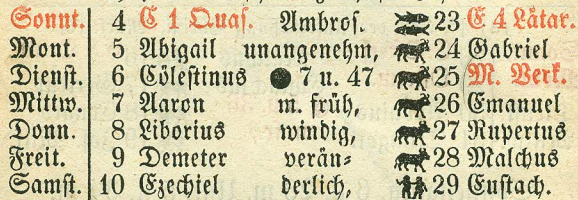 Sonnt. 4 C 1 Quas. Ambros. 23 E 4 Lätar.
Mont. 5 Abigail unangenehm, 24 Gabriel
Dienst. 6 Cölestinus ● 7 u. 47 25 M. Verk.
Mittw. 7 Aaron m. früh, 26 Emanuel
Donn. 8 Liborius windig, 27 Rupertus
Freit. 9 Demeter verän⸗ 28 Malchus
Samst. 10 Ezechiel derlich, 29 Eustach.